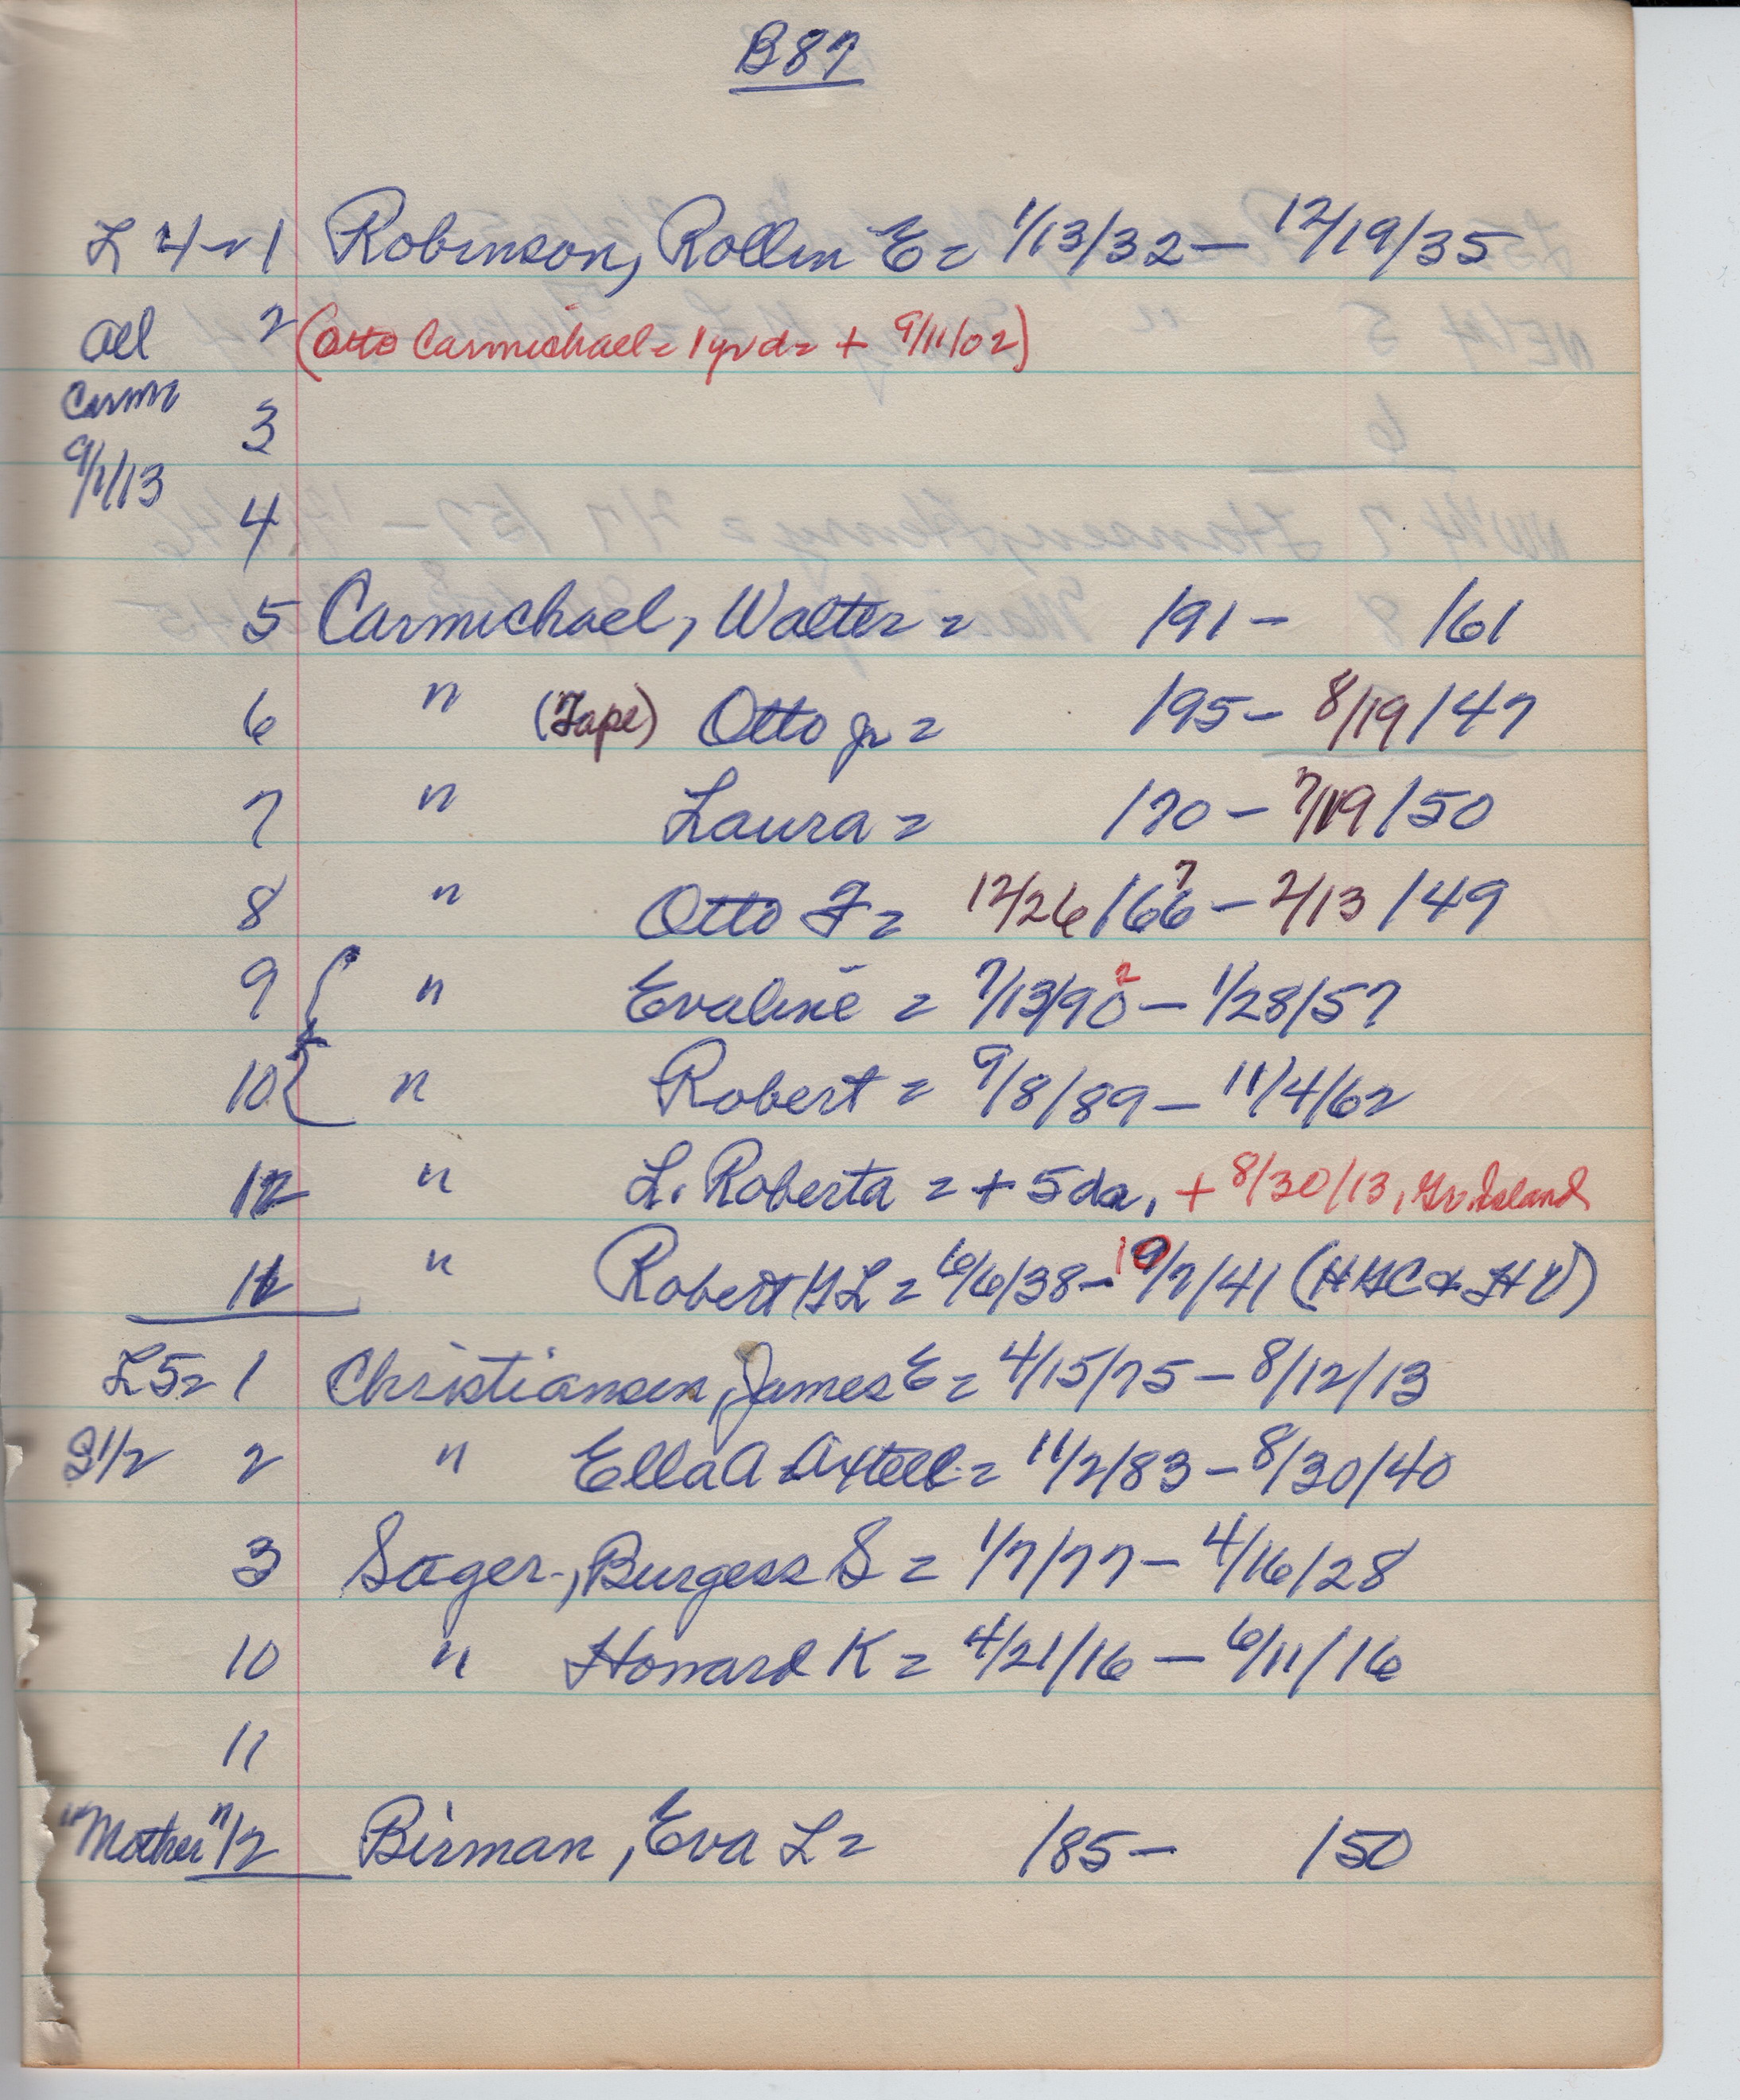 B87
L 4 = 1 Robinson, Rollin E = 1/13/32 — 12/19/35
All 2 (Otto Carmichael = 1 yr da = + 9/11/02)
Carm 3
9/1/13 4
5 Carmichael, Walter = /91 — /61
6 " (Tape) Otto Jr = /95 — 8/19/47
7 " Laura = /70 — 7/19/50
8 " Otto F = 12/26/66 7 — 2/13/49
9 { " Evaline = 7/13/90 2 — 1/28/57
10 { " Robert = 9/8/89 — 11/4/62
12 " L. Roberta = + 5 da, + 8/30/13, Gr. Island
11 " Robert = 6/6/38 — 10/7/41
L5 = 1 Christiansen, James E = 4/15/75 — 8/12/13
S 1/2 2 " Ella A Axtell = 11/2/83 — 8/30/40
3 Sager, Burgess S = 1/7/77 — 4/16/28
10 " Howard K = 4/21/16 — 6/11/16
11
"Mother" 12 Birman, Eva L = /85 — /50